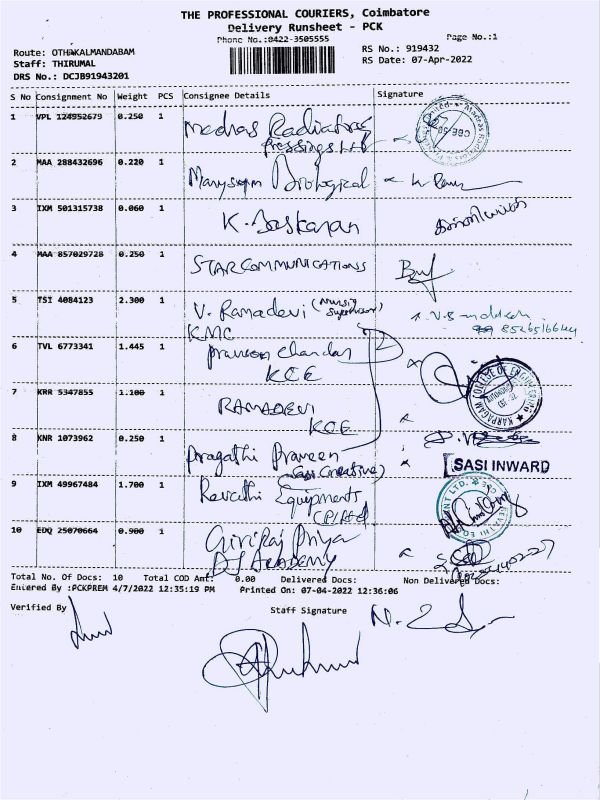 THE PROFESSIONAL COURIERS, Coimbatore
Delivery Runsheet - PCK
Phone No.:0422-3505555
Page No.:1
Route: OTHAKALMANDABAM
RS No.: 919432
Staff: THIRUMAL
RS Date: 07-Apr-2022
DRS No.: DCJB91943201
S No Consignment No Weight PCS Consignee Details Signature
1 VPL 124952679 0.250 1 Madras Radiators
Pressings Ltd
2 MAA 288432696 0.220 1 Biological
3 IXM 501315738 0.060 1 K. Baskaran
4 MAA 857029728 0.250 1 STAR COMMUNICATIONS
5 TSI 4084123 2.300 1 V. Ramadevi (Nursing Supervisor)
KMC
6 TVL 6773341 1.445 1 Praveen Chandar
KCE
KARPAGAM COLLEGE OF ENGINEERING
7 KRR 5347855 1.100 1 RAMADEVI
KCE
8 KNR 1073962 0.250 1 Pragathi Praveen
(Sasi Creative)
SASI INWARD
9 IXM 49967484 1.700 1 Revathi Equipments
10 EDQ 25070664 0.900 1 Giriraj Priya
Academy
Total No. Of Docs: 10 Total COD Amt: 0.00 Delivered Docs: Non Delivered Docs:
Entered By :PCKPREM 4/7/2022 12:35:19 PM Printed On: 07-04-2022 12:36:06
Verified By Staff Signature